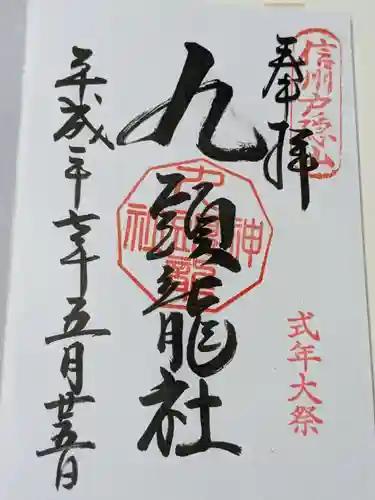 信州戸隠山
奉拝
式年大祭
九頭龍社
九頭龍神社
平成二十七年五月廿五日